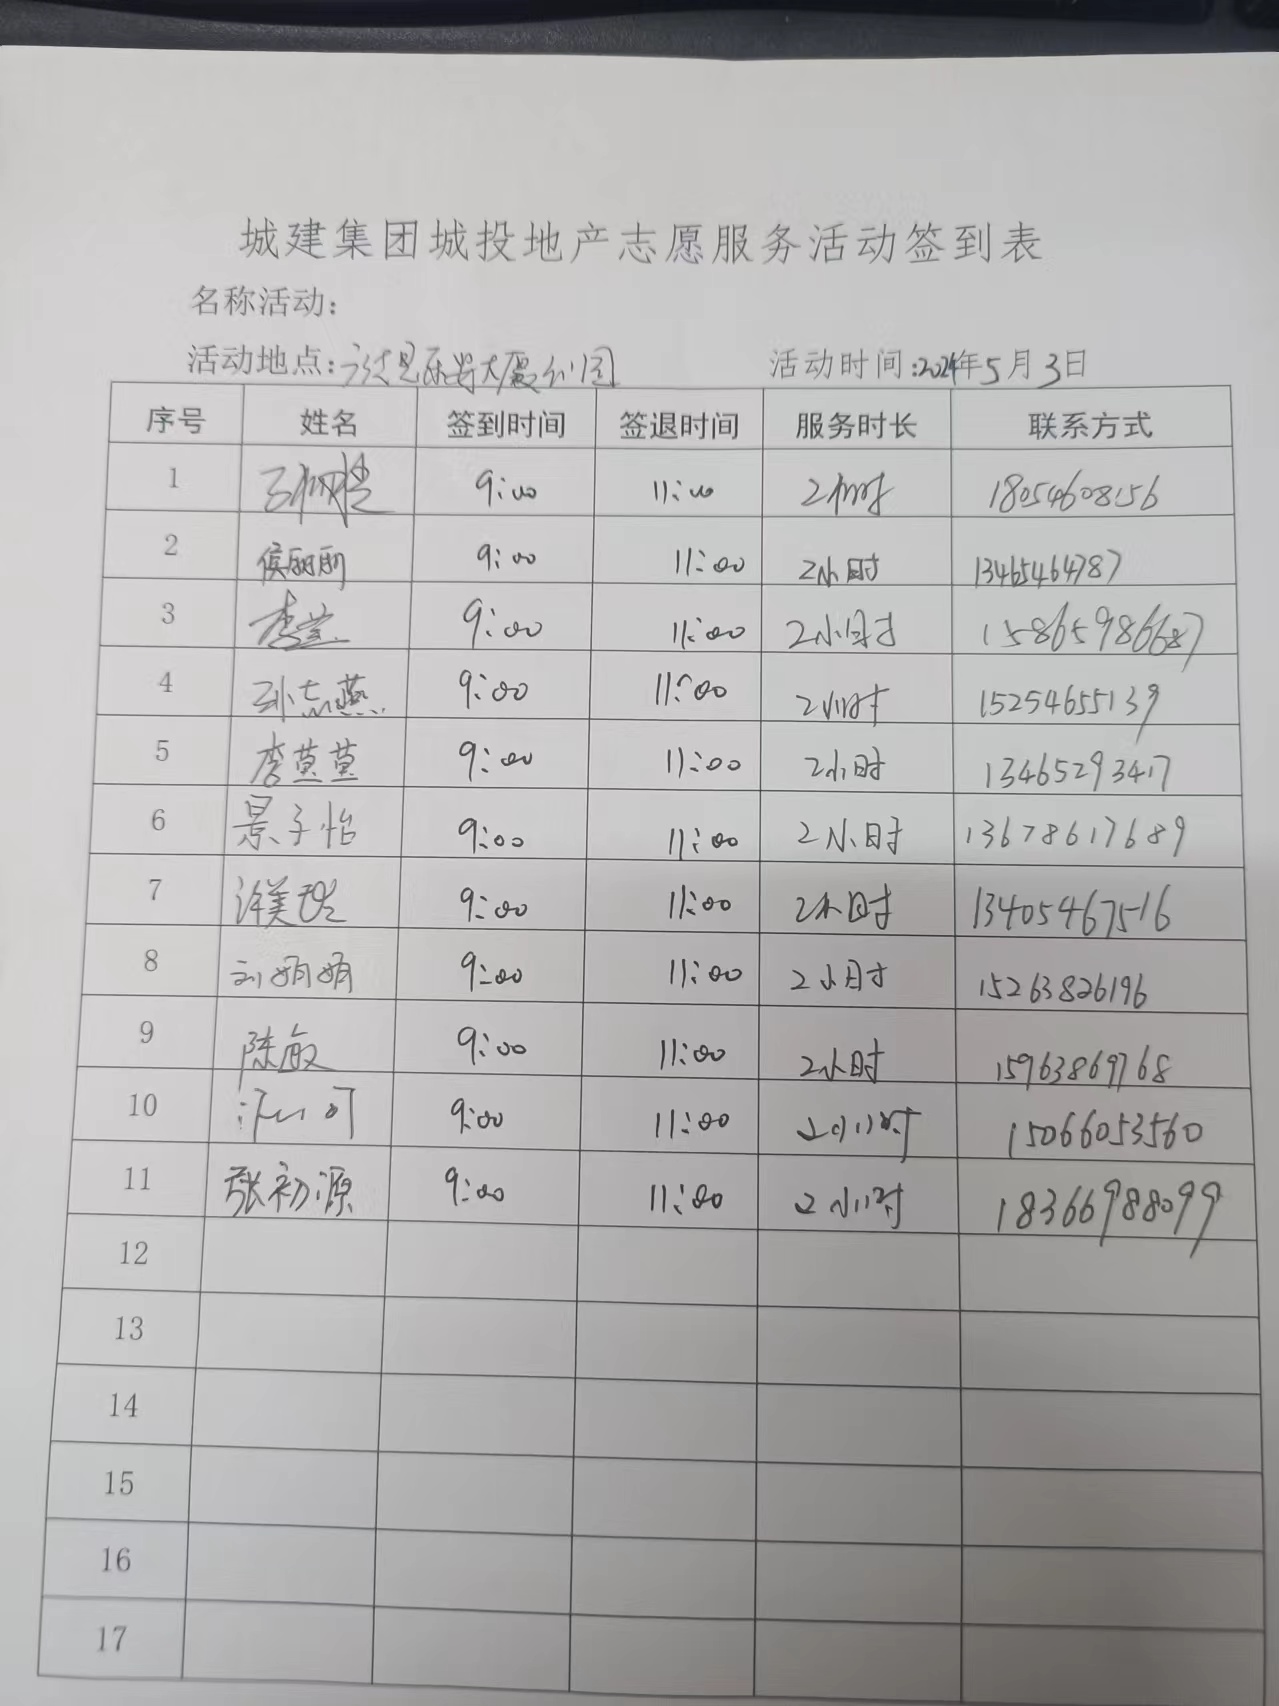 城建集团城投地产志愿服务活动签到表
名称活动：
活动地点： 活动时间：2024年5月3日
序号 姓名 签到时间 签退时间 服务时长 联系方式
1 9:00 11:00 2小时 18054608156
2 侯丽丽 9:00 11:00 2小时 13465464787
3 李莹 9:00 11:00 2小时 15865986687
4 孙志燕 9:00 11:00 2小时 15254655139
5 李莫莫 9:00 11:00 2小时 13465293417
6 景子怡 9:00 11:00 2小时 13678617689
7 9:00 11:00 2小时 13405467516
8 刘娟娟 9:00 11:00 2小时 15263826196
9 陈敏 9:00 11:00 2小时 15963869768
10 9:00 11:00 2小时 15066053560
11 张初源 9:00 11:00 2小时 18366988099
12
13
14
15
16
17